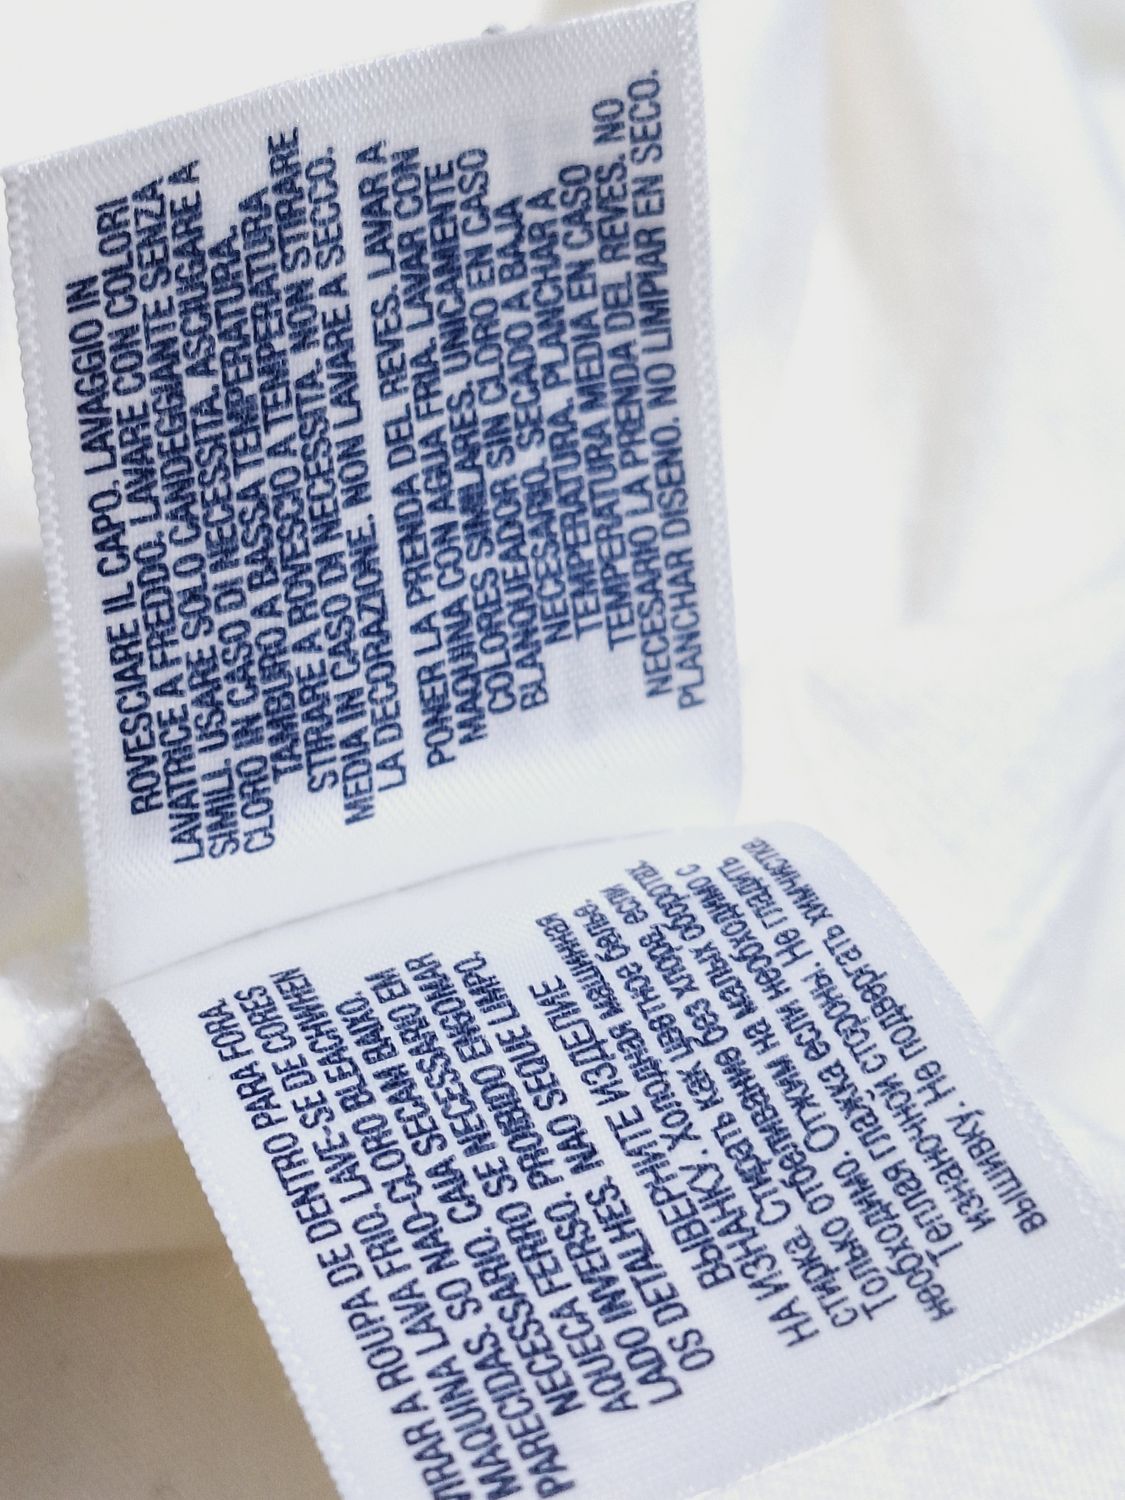 ROVESCIARE IL CAPO. LAVAGGIO IN
LAVATRICE A FREDDO. LAVARE CON COLORI
SIMILI. USARE SOLO CANDEGGIANTE SENZA
CLORO IN CASO DI NECESSITA. ASCIUGARE A
TAMBURO A BASSA TEMPERATURA.
STIRARE A ROVESCIO A TEMPERATURA
MEDIA IN CASO DI NECESSITA. NON STIRARE
LA DECORAZIONE. NON LAVARE A SECCO.
PONER LA PRENDA DEL REVES. LAVAR A
MAQUINA CON AGUA FRIA. LAVAR CON
COLORES SIMILARES. UNICAMENTE
BLANQUEADOR SIN CLORO EN CASO
NECESARIO. SECADO A BAJA
TEMPERATURA. PLANCHAR A
TEMPERATURA MEDIA EN CASO
NECESARIO LA PRENDA DEL REVES. NO
PLANCHAR DISENO. NO LIMPIAR EN SECO.
VIRAR A ROUPA DE DENTRO PARA FORA.
MAQUINA LAVA FRIO. LAVE-SE DE CORES
PARECIDAS. SO NAO-CLORO BLEACHWHEN
NECESSARIO. CAIA SECAM BAIXO.
AQUECA FERRO SE NECESSARIO EM
LADO INVERSO. PROIBIDO ENGOMAR
OS DETALHES. NAO SEQUE LIMPO.
ВЫВЕРНИТЕ ИЗДЕЛИЕ
НА ИЗНАНКУ. Холодная машинная
стирка. Стирать как цветное белье.
Только отбеливание без хлора, если
необходимо. Отжим на малых оборотах.
Теплая глажка если необходимо с
изнаночной стороны. Не гладить
вышивку. Не подвергать химчистке.